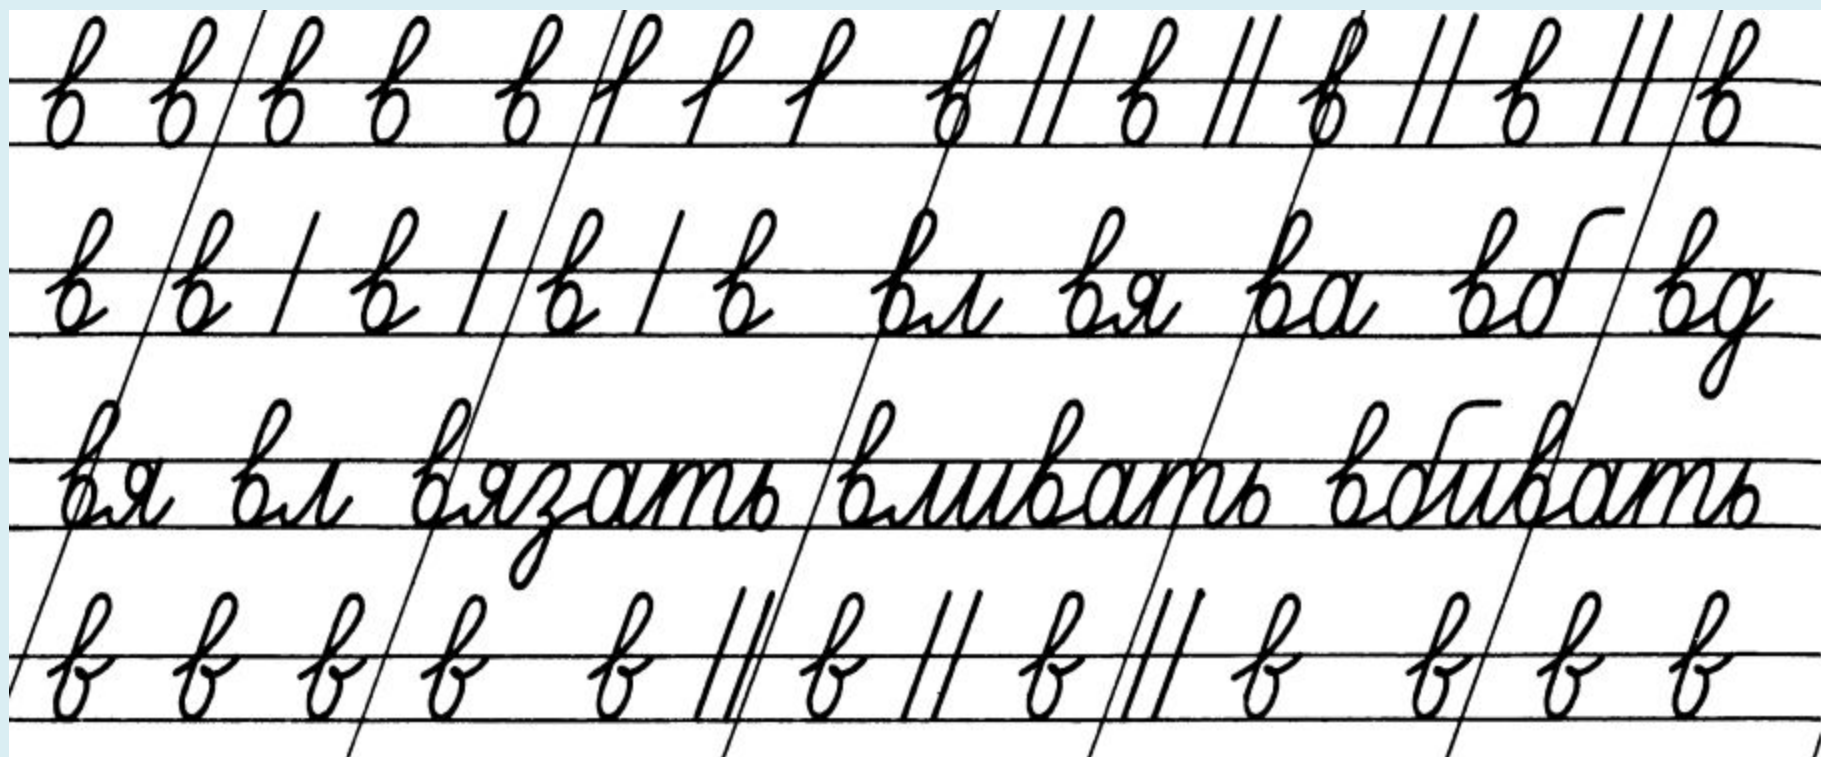 в в в в в в в в в в
в в в в в вл вя ва вб вд
вя вл вязать вливать вбивать
в в в в в в в в в в в